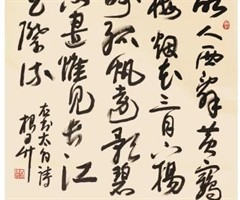 故人西辭黄鶴
樓烟花三月下揚
州孤帆遠影碧
空盡惟見長江
天際流
太白詩